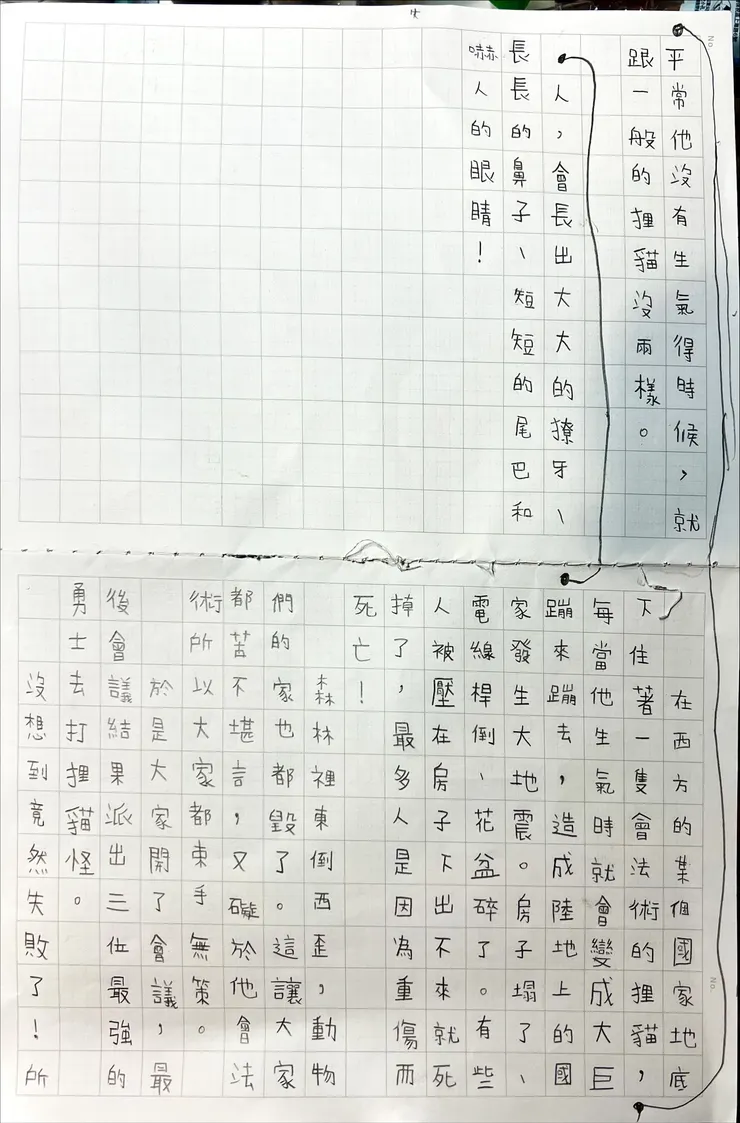 平常他沒有生氣得時候，就
跟一般的狸貓沒兩樣。
人，會長出大大的獠牙、
長長的鼻子、短短的尾巴和
嚇人的眼睛！
在西方的某個國家地底
下住著一隻會法術的狸貓，
每當他生氣時就會變成大巨
蹦來蹦去，造成陸地上的國
家發生大地震。房子塌了、
電線桿倒、花盆碎了。有些
人被壓在房子下出不來就死
掉了，最多人是因為重傷而
死亡！
森林裡東倒西歪，動物
們的家也都毀了。這讓大家
都苦不堪言，又礙於他會法
術所以大家都束手無策。
於是大家開了會議，最
後會議結果派出三位最強的
勇士去打狸貓怪。
沒想到竟然失敗了！所